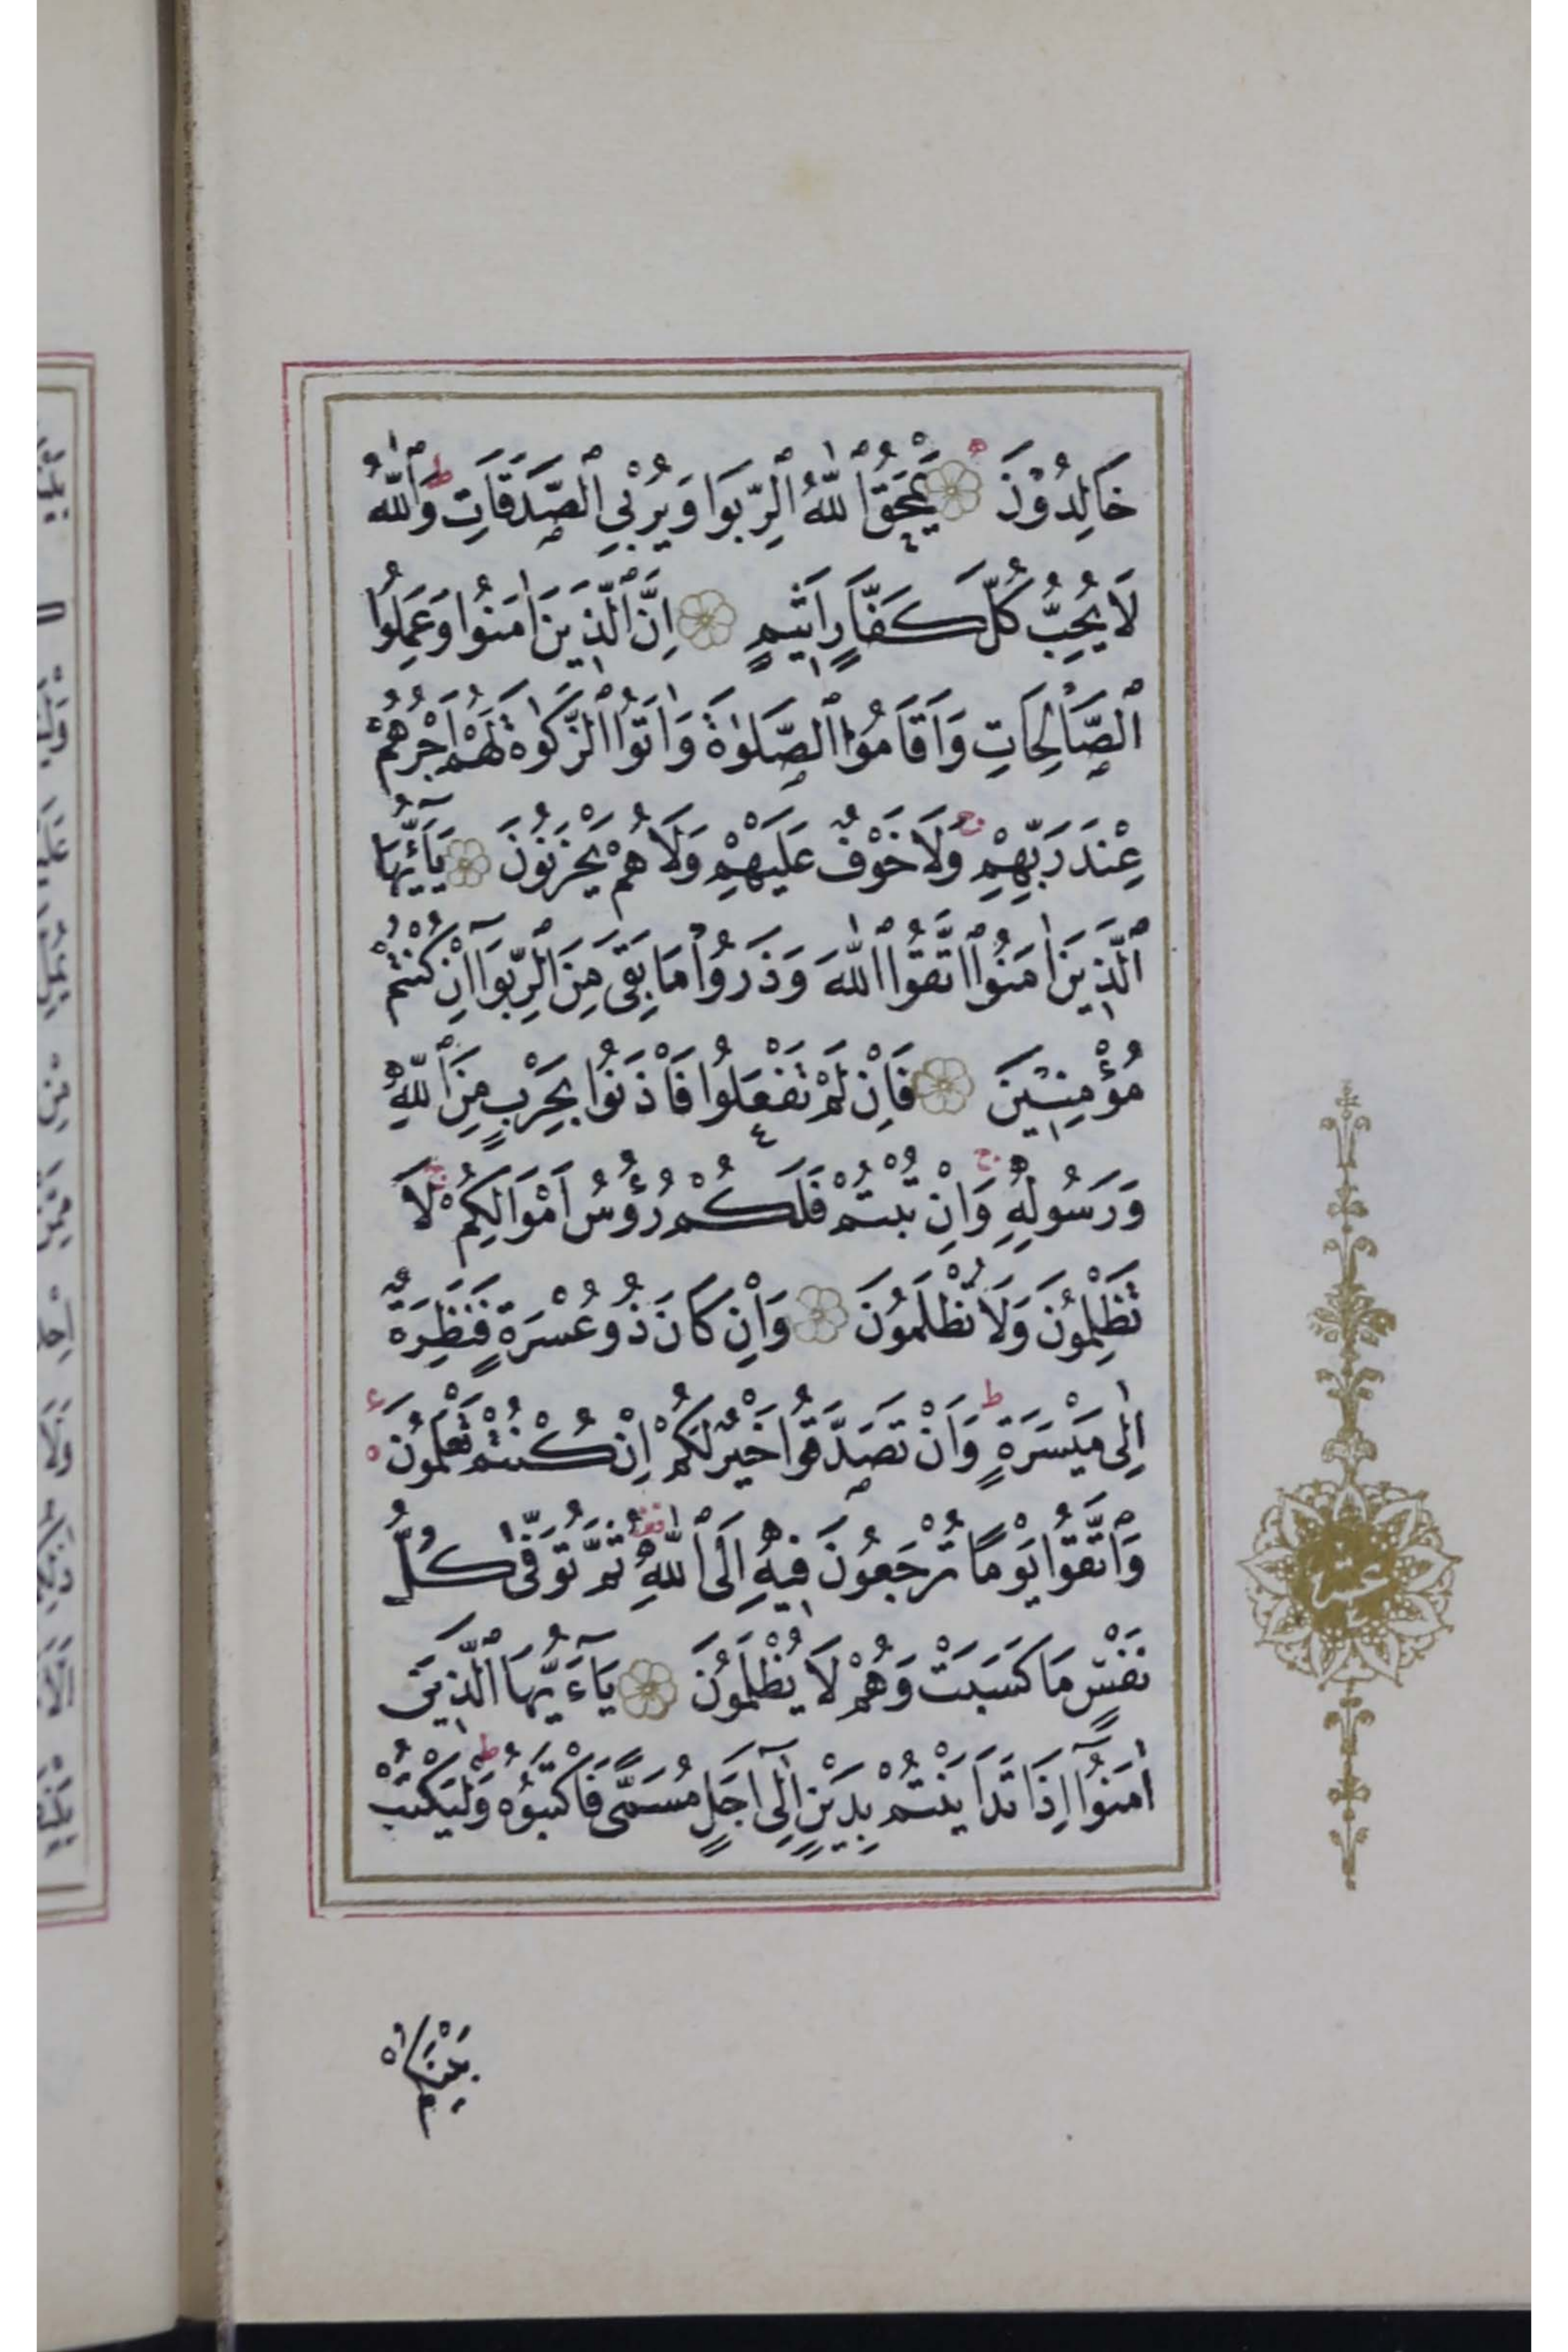 خَالِدُوْنَ ۞ يَمْحَقُ ٱللّٰهُ ٱلرِّبَوا وَيُرْبِي ٱلصَّدَقَاتِ ۗ وَٱللّٰهُ
لَا يُحِبُّ كُلَّ كَفَّارٍ اَثِيمٍ ۞ اِنَّ ٱلَّذِينَ اٰمَنُوا وَعَمِلُوا
ٱلصَّالِحَاتِ وَاَقَامُوا ٱلصَّلٰوةَ وَاٰتَوُا ٱلزَّكٰوةَ لَهُمْ اَجْرُهُمْ
عِنْدَ رَبِّهِمْ وَلَا خَوْفٌ عَلَيْهِمْ وَلَا هُمْ يَحْزَنُوْنَ ۞ يَآءَيُّهَا
ٱلَّذِينَ اٰمَنُوا ٱتَّقُوا ٱللّٰهَ وَذَرُوا مَا بَقِيَ مِنَ ٱلرِّبَوآ اِنْ كُنْتُمْ
مُؤْمِنِيْنَ ۞ فَاِنْ لَمْ تَفْعَلُوا فَأْذَنُوا بِحَرْبٍ مِنَ ٱللّٰهِ
وَرَسُولِهِ وَاِنْ تُبْتُمْ فَلَكُمْ رُؤُسُ اَمْوَالِكُمْ لَا
تَظْلِمُونَ وَلَا تُظْلَمُونَ ۞ وَاِنْ كَانَ ذُو عُسْرَةٍ فَنَظِرَةٌ
اِلٰى مَيْسَرَةٍ وَاَنْ تَصَدَّقُوا خَيْرٌ لَكُمْ اِنْ كُنْتُمْ تَعْلَمُونَ
وَٱتَّقُوا يَوْمًا تُرْجَعُونَ فِيهِ اِلَى ٱللّٰهِ ثُمَّ تُوَفّٰى كُلُّ
نَفْسٍ مَا كَسَبَتْ وَهُمْ لَا يُظْلَمُونَ ۞ يَآءَيُّهَا ٱلَّذِينَ
اٰمَنُوآ اِذَا تَدَايَنْتُمْ بِدَيْنٍ اِلٰىٓ اَجَلٍ مُسَمًّى فَاكْتُبُوهُ وَلْيَكْتُبْ
بَيْنَكُمْ